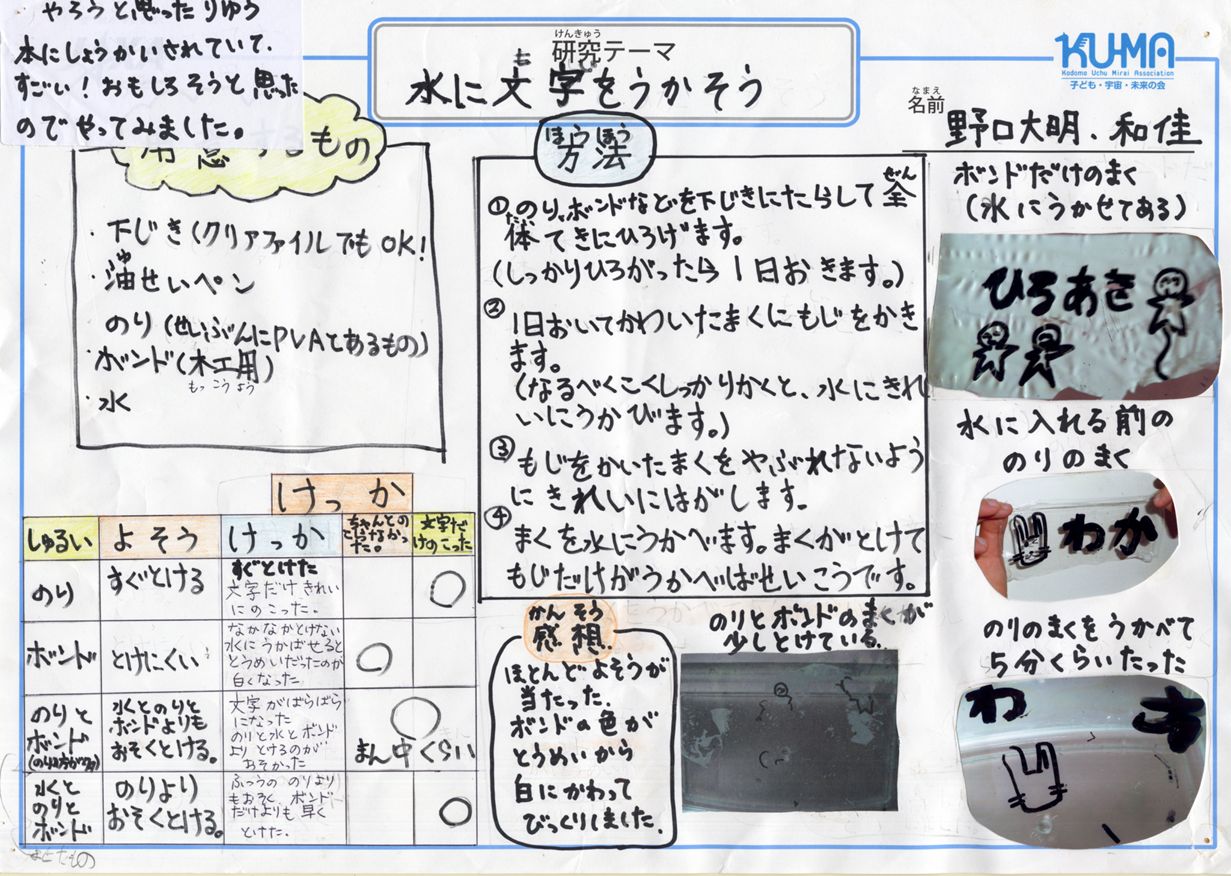 やろうと思ったりゆう
本にしょうかいされていて、
すごい！おもしろそうと思った
のでやってみました。
けんきゅう
研究テーマ
も
水に文字をうかそう
KUMA
Kodomo Uchu Mirai Association
子ども・宇宙・未来の会
なまえ
名前
野口大明、和佳
用意するもの
・下じき(クリアファイルでもOK!
ゆ
・油せいペン
のり(せいぶんにPVAとあるもの)
・ボンド(木工用)
もっこうよう
・水
ほうほう
方法
ぜん
①のり、ボンドなどを下じきにたらして全
たい
体てきにひろげます。
(しっかりひろがったら1日おきます。)
②
1日おいてかわいたまくにもじをかき
ます。
(なるべくこくしっかりかくと、水にきれ
いにうかびます。)
③もじをかいたまくをやぶれないよう
にきれいにはがします。
④
まくを水にうかべます。まくがとけて
もじだけがうかべばせいこうです。
けっか
しゅるい
よそう
けっか
文字だ
けのこった
のり
すぐとける
すぐとけた
文字だけきれい
にのこった。
○
ボンド
とけにくい
なかなかとけない
水にうかばせると
とうめいだったのが
白くなった。
○
のりと
ボンド
(のりの方が多い)
水とのりと
ボンドよりも
おそくとける。
文字がばらばら
になった
のりと水とボンド
よりとけるのが
おそかった
○
まん中くらい
水と
のりと
ボンド
のりより
おそくとける。
ふつうののりより
もおそく、ボンド
だけよりも早く
とけた。
○
かんそう
感想
ほとんどよそうが
当たった。
ボンドの色が
とうめいから
白にかわって
びっくりしました。
のりとボンドのまくが
少しとけている。
ボンドだけのまく
(水にうかせてある)
ひろあき
水に入れる前の
のりのまく
わか
のりのまくをうかべて
5分くらいたった
わ